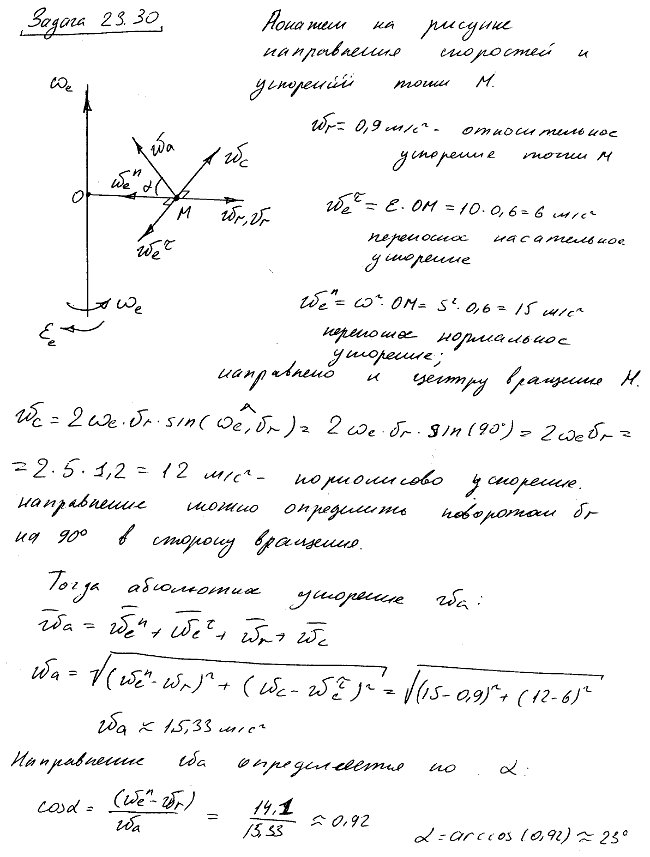 Задача 23.30
Покажем на рисунке
направления скоростей и
ускорений точки М.
ωe
wa
wc
weⁿ
α
O
M
wr, vr
weτ
ωe
εe
wr = 0,9 м/с² - относительное
ускорение точки М
weτ = ε · OM = 10 · 0,6 = 6 м/с²
переносное касательное
ускорение
weⁿ = ω² · OM = 5² · 0,6 = 15 м/с²
переносное нормальное
ускорение;
направлено к центру вращение М.
wc = 2ωe · vr · sin(ωe, vr) = 2ωe · vr · sin(90°) = 2ωe vr =
= 2 · 5 · 1,2 = 12 м/с² - кориолисово ускорение.
направление можно определить поворотом vr
на 90° в сторону вращения.
Тогда абсолютное ускорение wa:
w̄a = w̄eⁿ + w̄eτ + w̄r + w̄c
wa = √((weⁿ - wr)² + (wc - weτ)²) = √((15 - 0,9)² + (12 - 6)²)
wa ≈ 15,33 м/с²
Направление wa определяется по α:
cosα = (weⁿ - wr) / wa = 14,1 / 15,33 ≈ 0,92
α = arccos(0,92) ≈ 23°